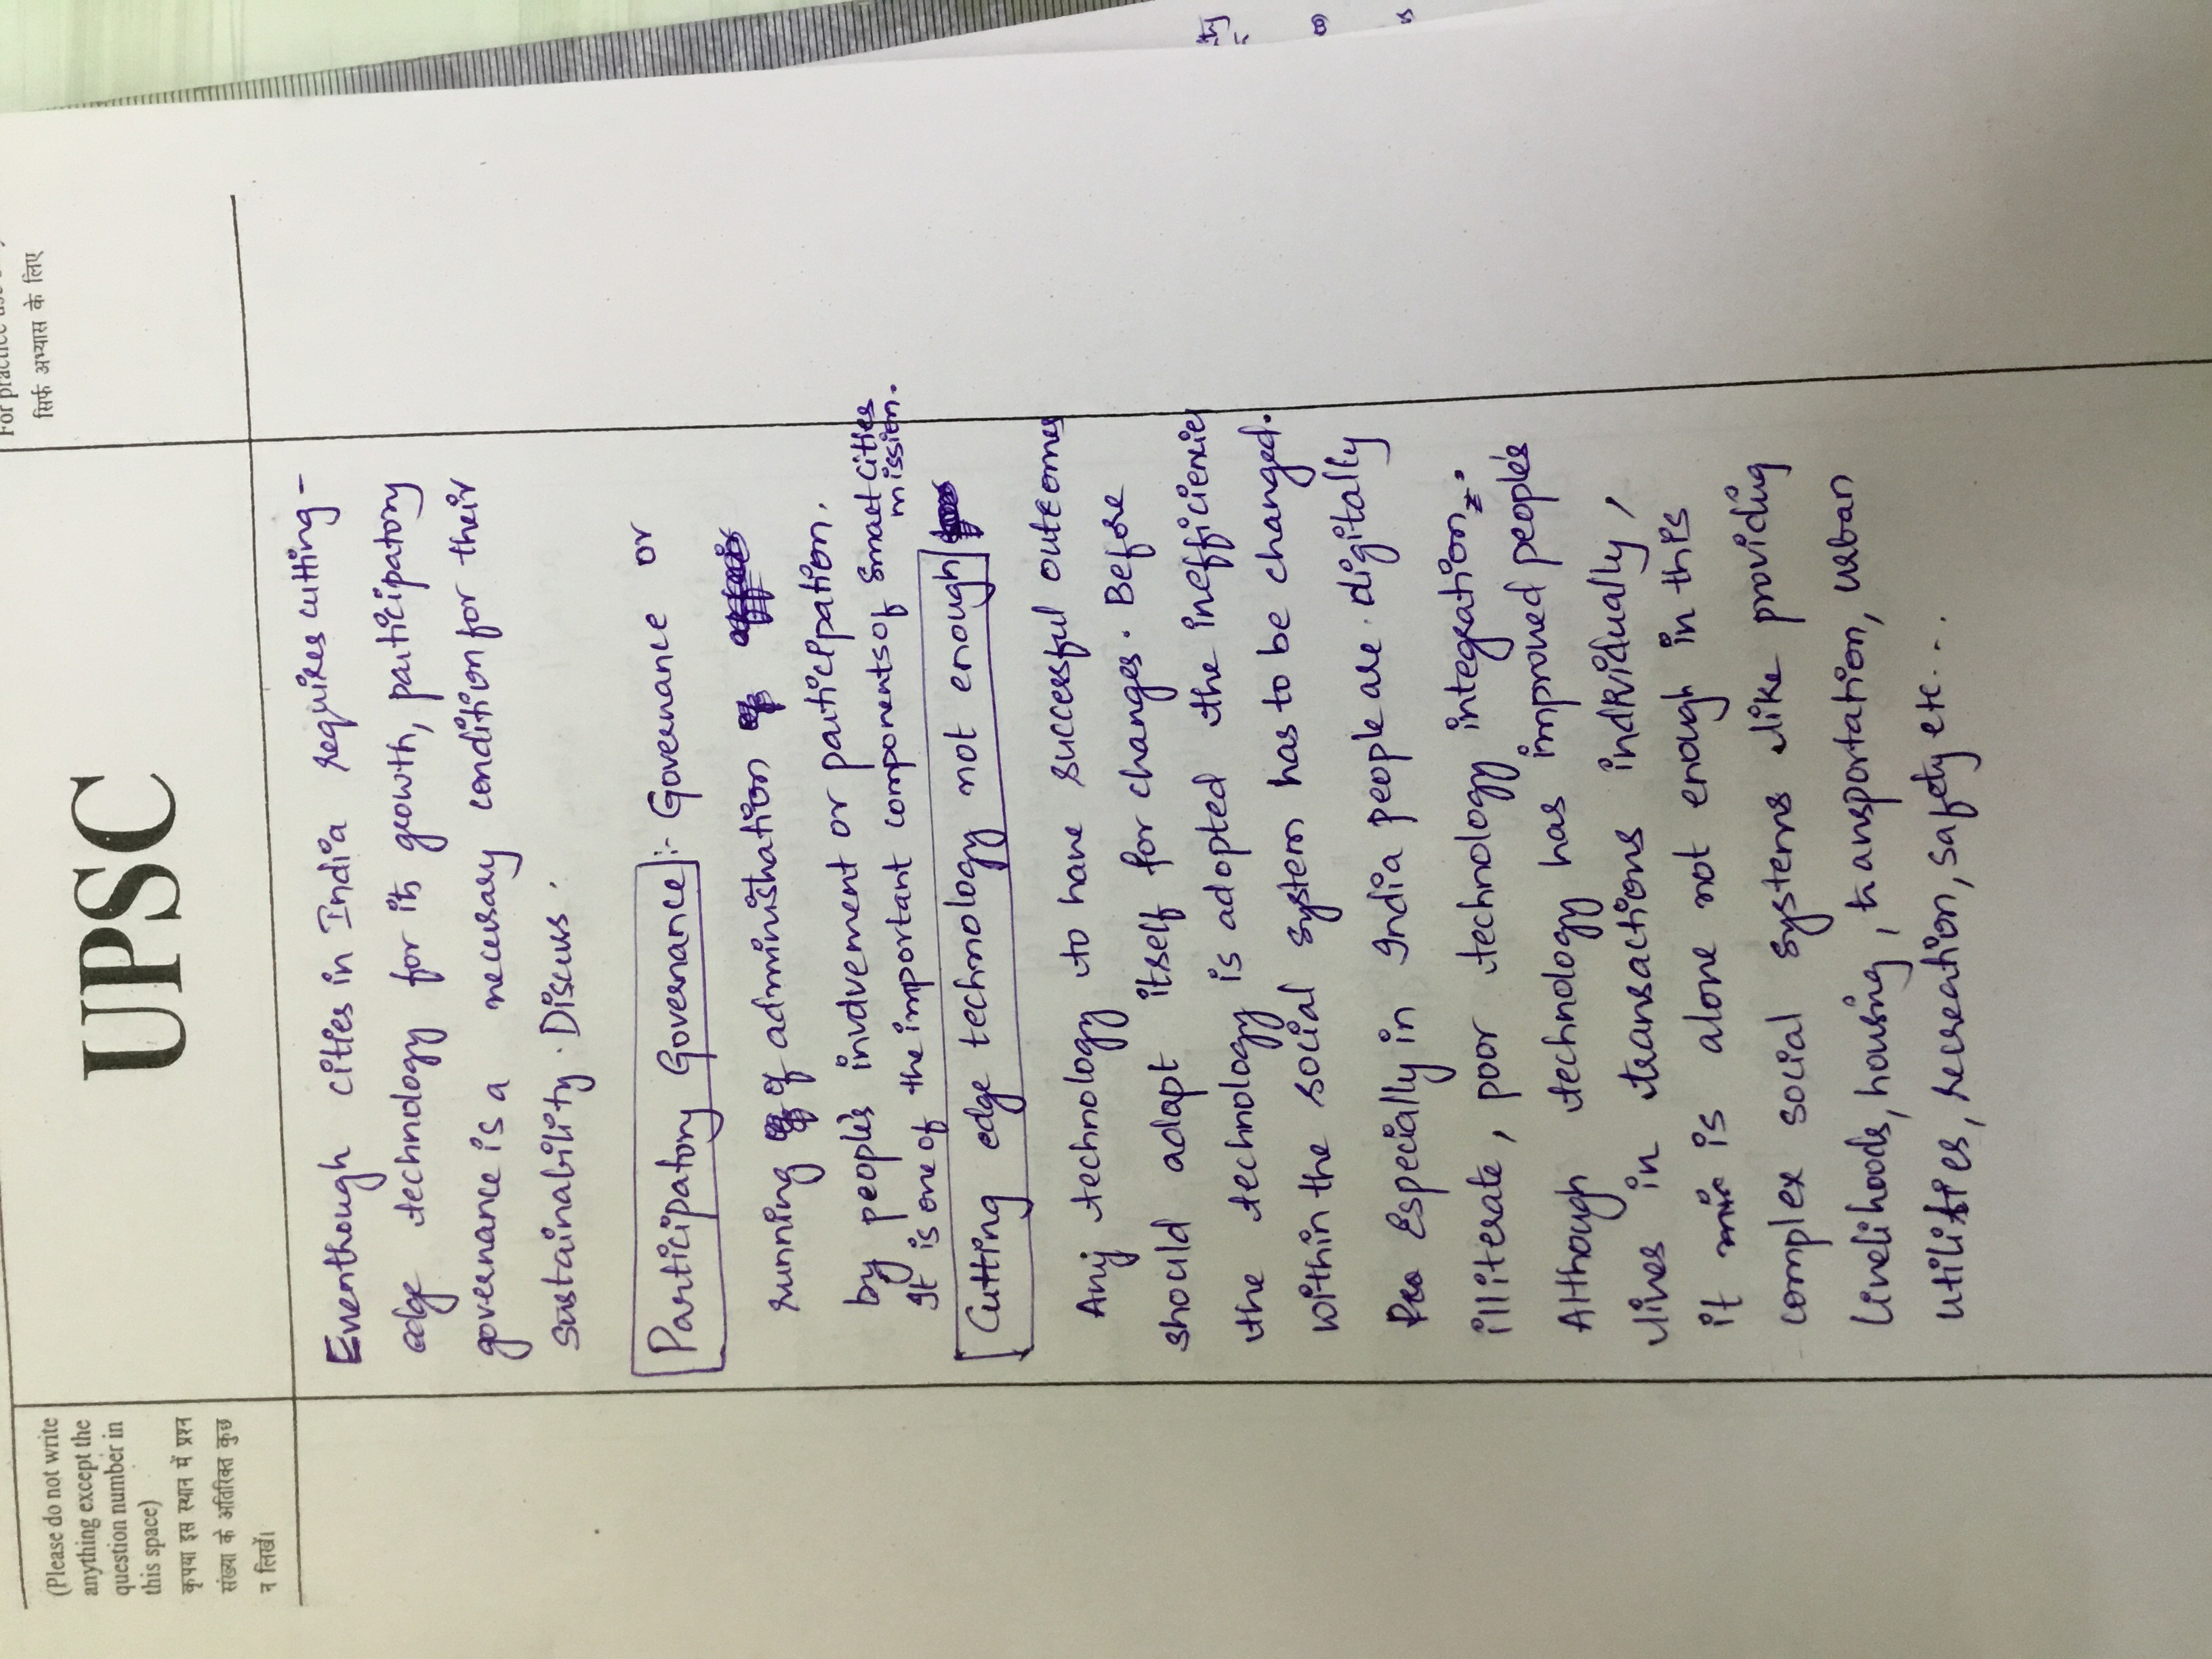 For practice use
सिर्फ अभ्यास के लिए
UPSC
(Please do not write
anything except the
question number in
this space)
कृपया इस स्थान में प्रश्न
संख्या के अतिरिक्त कुछ
न लिखें।
Eventhough cities in India requires cutting-
edge technology for its growth, participatory
governance is a necessary condition for their
sustainability. Discuss.
Participatory Governance :- Governance or
running of administration
by people's involvement or participation.
It is one of the important components of Smart Cities mission.
Cutting edge technology not enough
Any technology to have successful outcomes
should adapt itself for changes. Before
the technology is adopted the inefficiencies
within the social system has to be changed.
Especially in India people are digitally
illiterate, poor technology integration.
Although technology has improved people's
lives in transactions individually,
it is alone not enough in this
complex social systems like providing
livelihoods, housing, transportation, urban
utilities, recreation, safety etc...